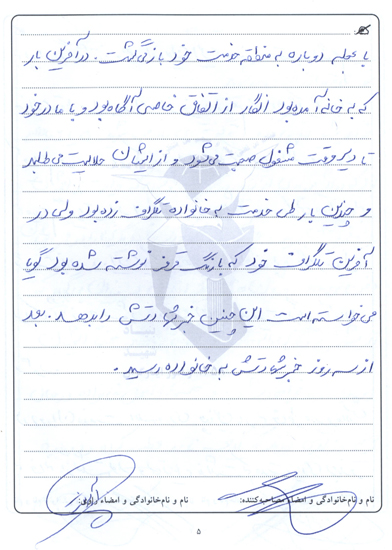 با عجله دوباره به منطقه خدمت خود بازگشت. در آخرین بار
که به خانه آمده بود انگار از اتفاق خاصی آگاه بود و با مادر خود
تا دیروقت مشغول صحبت می‌شود و از ایشان حلالیت می‌طلبد
و چندین بار طی خدمت به خانواده تلگراف زده بود ولی در
آخرین تلگراف خود که با رنگ قرمز نوشته شده بود گویا
می‌خواسته است این چنین خبر شهادتش را بدهد. بعد
از سه روز خبر شهادتش به خانواده رسید.
نام و نام‌خانوادگی و امضاء مصاحبه‌کننده:
نام و نام‌خانوادگی و امضاء راوی:
۵